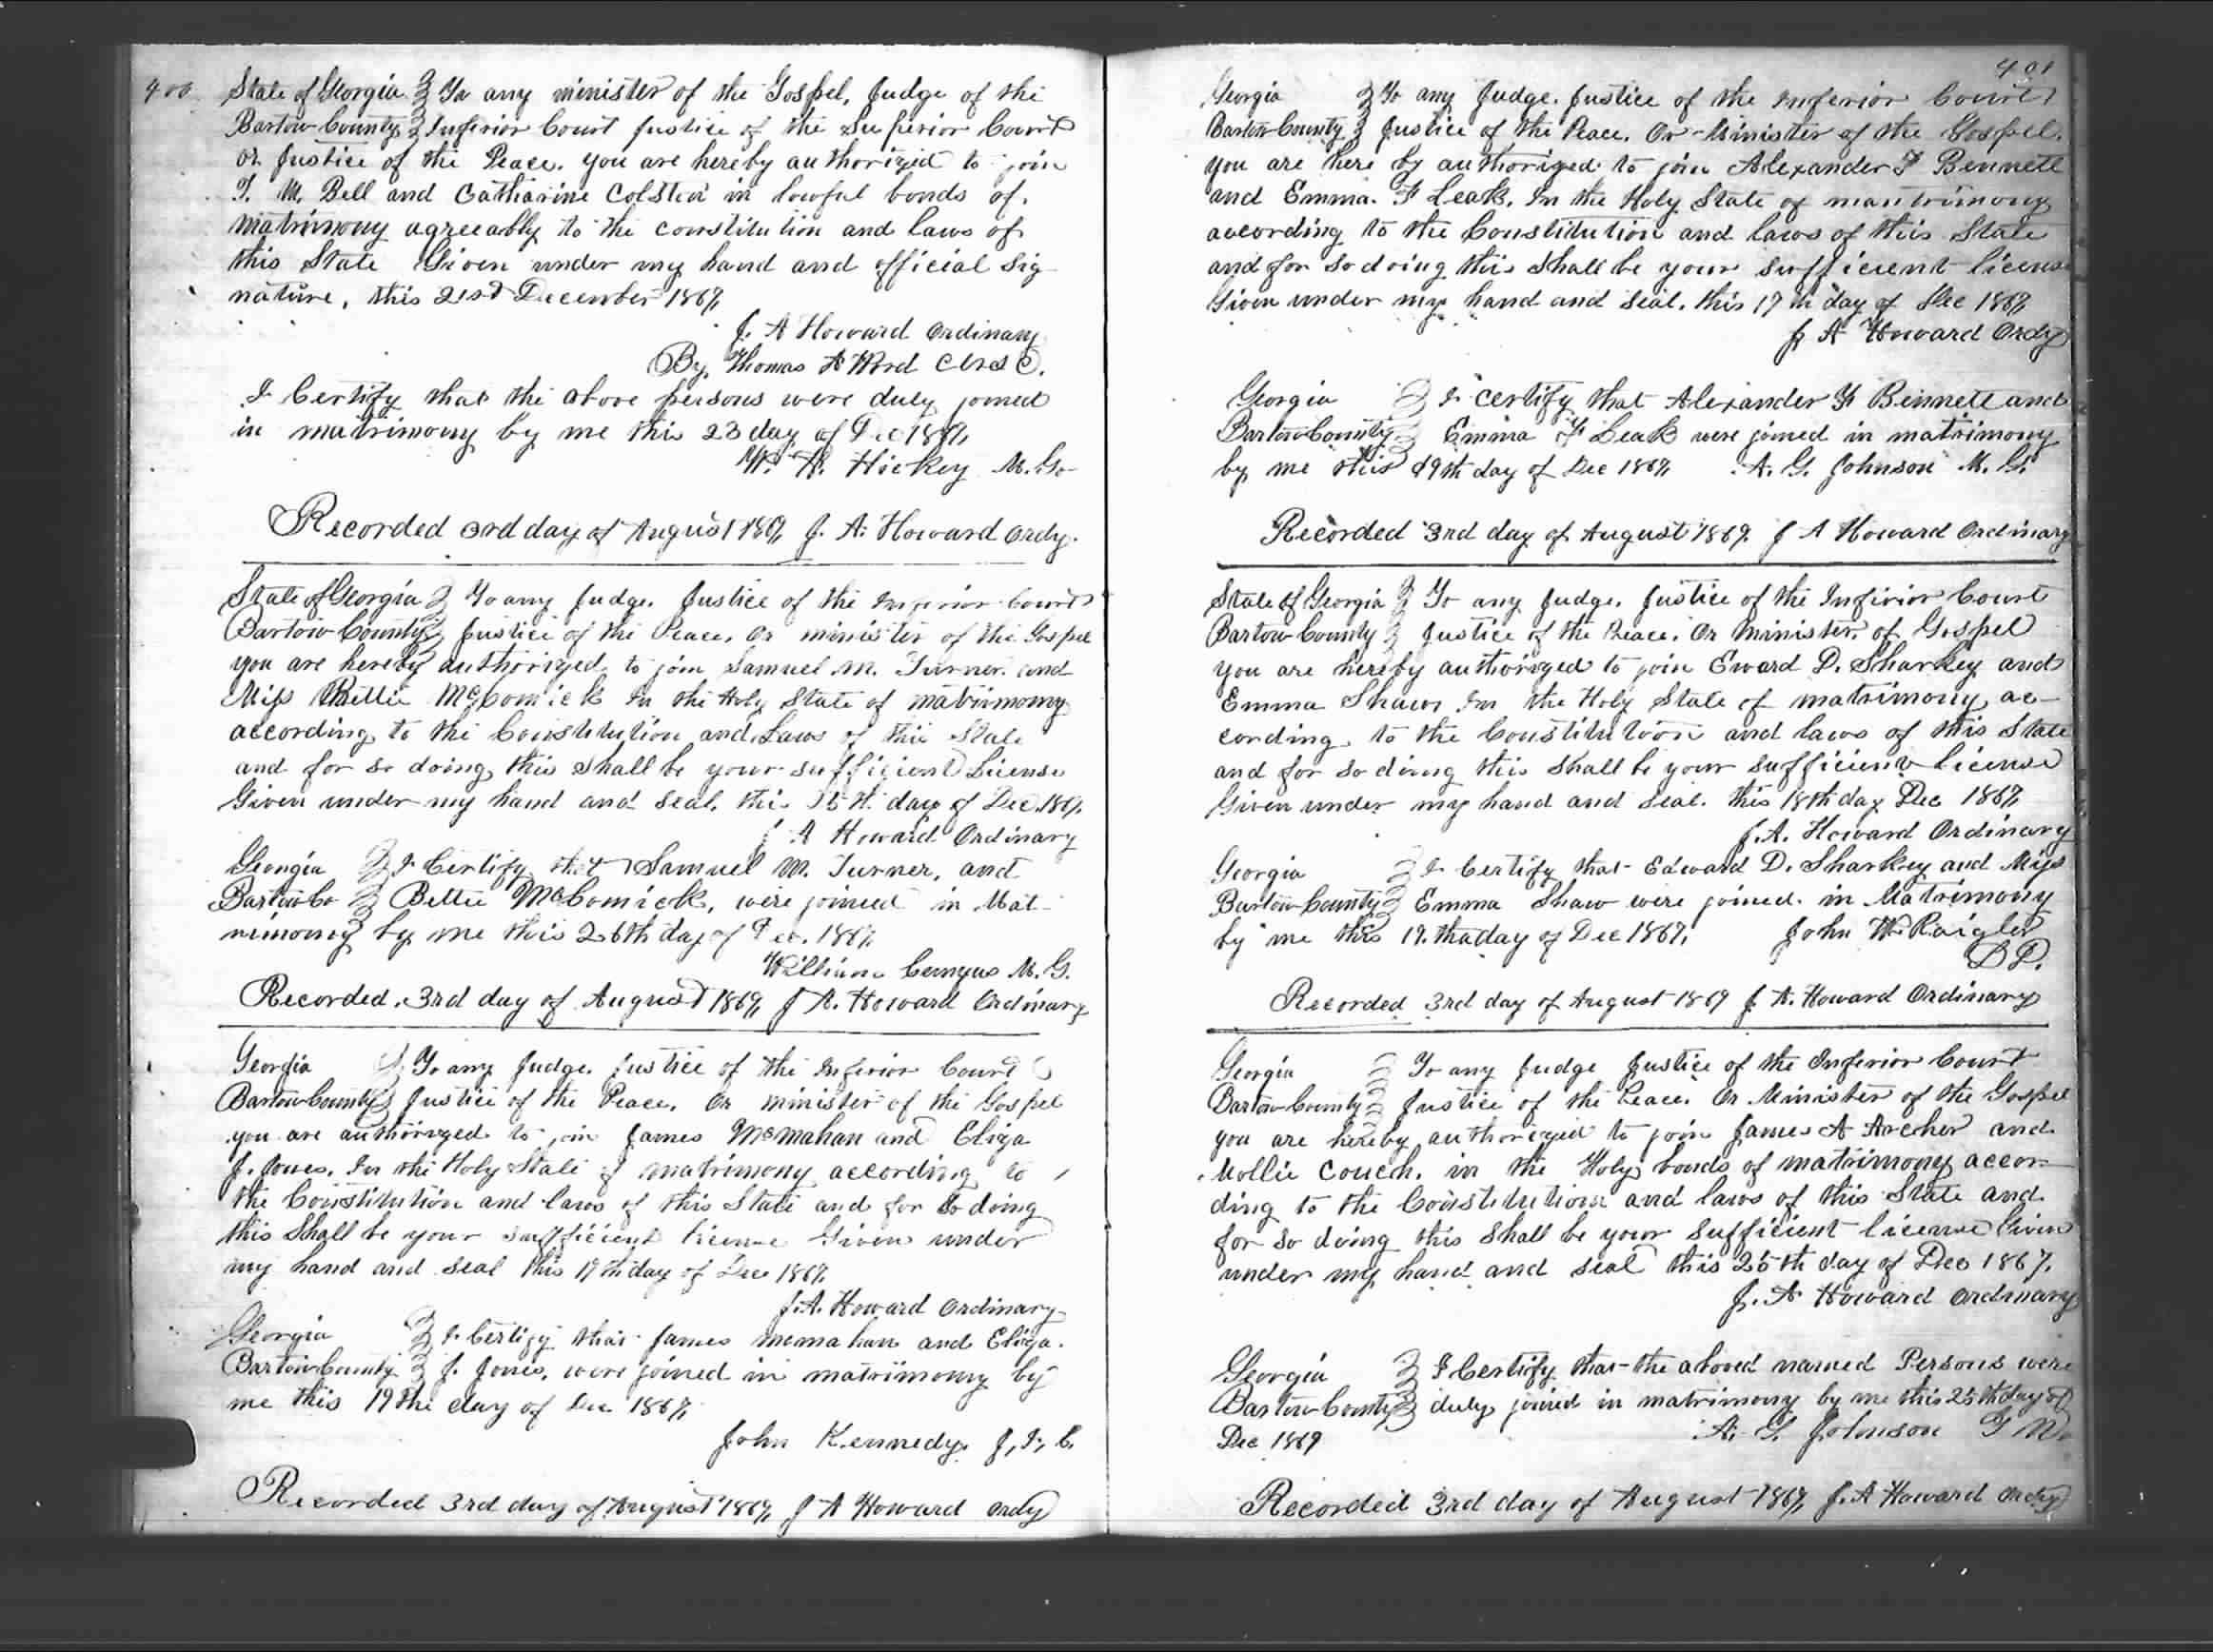 400
State of Georgia } To any minister of the Gospel, Judge of the
Bartow County } Inferior Court Justice of the Superior Court
or Justice of the Peace. you are hereby authorized to join
T. M. Bell and Catharine Colsten in lawful bonds of
matrimony agreeably to the constitution and laws of
this State Given under my hand and official sig
nature, this 21st December 1867
J. A Howard Ordinary
By. Thomas A Word C
I Certify that the above persons were duly joined
in matrimony by me this 23 day of Dec 1867
W. A. Hickey M. G.
Recorded 3rd day of August 1869 J. A. Howard Ordy.
State of Georgia } To any Judge. Justice of the Inferior Court
Bartow County } Justice of the Peace, Or minister of the Gospel
you are hereby authorized to join Samuel M. Turner and
Miss Bettie McComick In the Holy State of matrimony
according to the Constitution and Laws of this State
and for so doing this shall be your sufficient License
Given under my hand and seal, this day of Dec 1867
J A Howard Ordinary
Georgia } I Certify that Samuel M. Turner, and
Bartow Co } Bettie McComick, were joined in Mat-
rimony by me this 26th day of Dec. 1867
William M. G.
Recorded. 3rd day of August 1869 J A. Howard Ordinary
Georgia } To any Judge. Justice of the Inferior Court
Bartow County } Justice of the Peace, Or minister of the Gospel
you are authorized to join James McMahan and Eliza
J. Jones, In the Holy State of matrimony according to
the Constitution and laws of this State and for so doing
this shall be your sufficient license Given under
my hand and seal this 17th day of Dec 1867
J. A. Howard Ordinary
Georgia } I Certify that James mcmahan and Eliza.
Bartow County } J. Jones, were joined in matrimony by
me this 19 the day of Dec 1867
John Kennedy. J. I. C.
Recorded 3rd day of August 1869 J A Howard Ordy
401
Georgia } To any Judge. Justice of the Inferior Court
Bartow County } Justice of the Peace. Or Minister of the Gospel.
you are here by authorized to join Alexander F Bennett
and Emma. F Leak. In the Holy State of mantrimony
according to the Constitution and laws of this State
and for so doing this shall be your sufficient license
Given under my hand and seal. this 17th day of Dec 1867
J A Howard Ordy
Georgia } I certify that Alexander F Bennett and
Bartow County } Emma F Leak were joined in matrimony
by me this 19th day of Dec 1867 A. G. Johnson M. G.
Recorded 3rd day of August 1869. J A Howard Ordinary
State of Georgia } To any Judge. Justice of the Inferior Court
Bartow County } Justice of the Peace. Or Minister. of Gospel
you are hereby authorized to join Eward D. Sharkey and
Emma Shaw In the Holy State of matrimony ac-
cording to the Constitution and laws of this State
and for so doing this shall be your sufficient license
Given under my hand and seal. this 18th day Dec 1867
J. A. Howard Ordinary
Georgia } I Certify that Edward D. Sharkey and Miss
Bartow County } Emma Shaw were joined in Matrimony
by me this 19. day of Dec 1867. John W.
Recorded 3rd day of August 1869 J. A. Howard Ordinary
Georgia } To any Judge Justice of the Inferior Court
Bartow County } Justice of the Peace. Or Minister of the Gospel
you are hereby authorized to join James A Archer and
Mollie Couch. in the Holy bonds of matrimony accor-
ding to the Constitution and laws of this State and
for so doing this shall be your sufficient license Given
under my hand and seal this 25th day of Dec 1867.
J. A Howard Ordinary
Georgia } I Certify that the aboved named Persons were
Bartow County } duly joined in matrimony by me this 25th day of
Dec 1869 A. G. Johnson
Recorded 3rd day of August 1869 J. A Howard Ordy